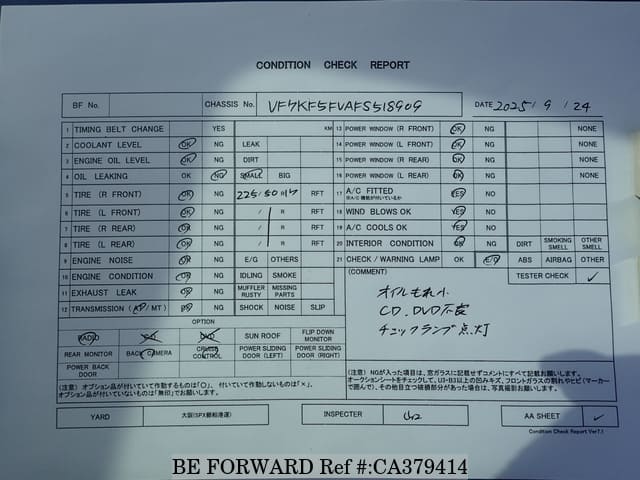 CONDITION CHECK REPORT
BF No. CHASSIS No. VF7KF5FVAFS518909 DATE 2025 / 9 / 24
1 TIMING BELT CHANGE YES KM 13 POWER WINDOW (R FRONT) OK NG NONE
2 COOLANT LEVEL OK NG LEAK 14 POWER WINDOW (L FRONT) OK NG NONE
3 ENGINE OIL LEVEL OK NG DIRT 15 POWER WINDOW (R REAR) OK NG NONE
4 OIL LEAKING OK NG SMALL BIG 16 POWER WINDOW (L REAR) OK NG NONE
5 TIRE (R FRONT) OK NG 225/50 17 RFT 17 A/C FITTED YES NO
※A/C 機能が付いているか
6 TIRE (L FRONT) OK NG / R RFT 18 WIND BLOWS OK YES NO
7 TIRE (R REAR) OK NG / R RFT 19 A/C COOLS OK YES NO
8 TIRE (L REAR) OK NG / R RFT 20 INTERIOR CONDITION OK NG DIRT SMOKING SMELL OTHER SMELL
9 ENGINE NOISE OK NG E/G OTHERS 21 CHECK / WARNING LAMP OK E/G ABS AIRBAG OTHER
10 ENGINE CONDITION OK NG IDLING SMOKE (COMMENT) TESTER CHECK ✓
11 EXHAUST LEAK OK NG MUFFLER RUSTY MISSING PARTS
12 TRANSMISSION (AP / MT) OK NG SHOCK NOISE SLIP
オイルもれ小
CD、DVD不良
チェックランプ点灯
OPTION
RADIO CD DVD SUN ROOF FLIP DOWN MONITOR
REAR MONITOR BACK CAMERA CRUISE CONTROL POWER SLIDING DOOR (LEFT) POWER SLIDING DOOR (RIGHT)
POWER BACK DOOR
(注意) オプション品が付いていて作動するものは「〇」、付いていて作動しないものは「×」、
オプション品が付いていないものは「無印」でお願いします。
(注意) NGが入った項目は、窓ガラスに記載せずコメントにすべて記載お願いします。
オークションシートをチェックして、U3・B3以上の凹みキズ、フロントガラスの割れやヒビ(マーカーで囲んで)、その他目立つ破損部分があった場合は、写真撮影お願いします。
YARD 大阪(SPX郵船港運) INSPECTER AA SHEET ✓
Condition Check Report Ver7.1
BE FORWARD Ref #:CA379414